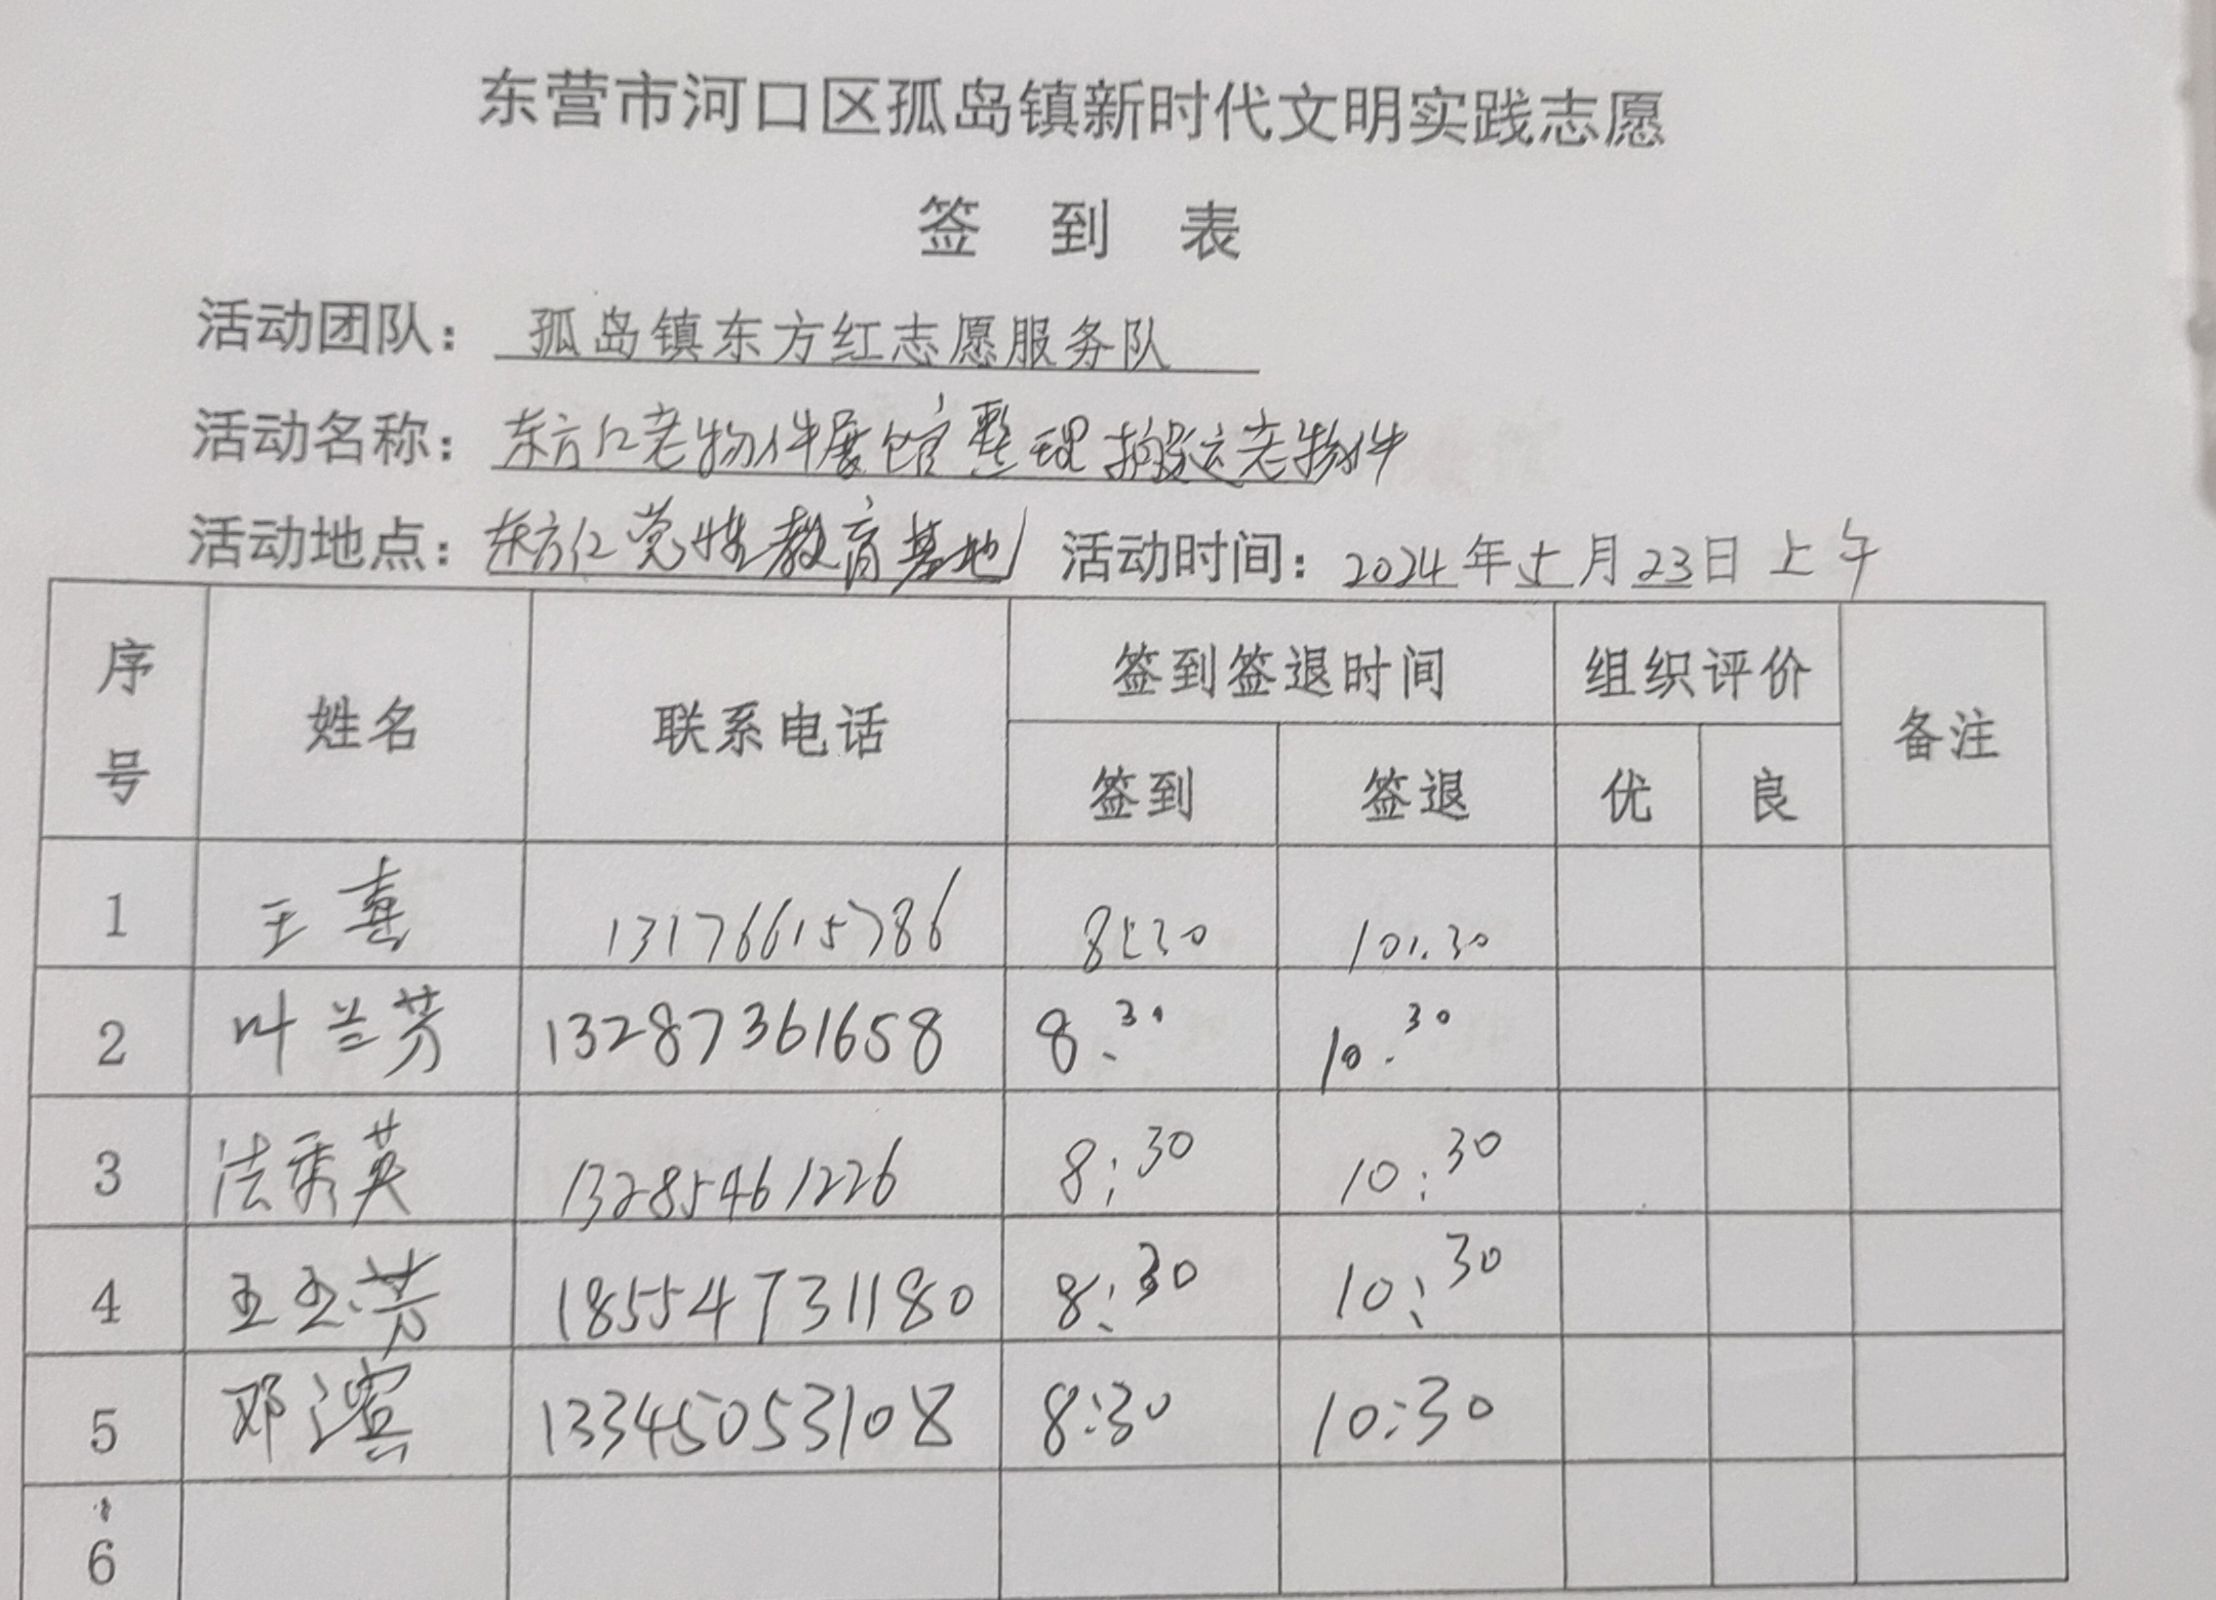 东营市河口区孤岛镇新时代文明实践志愿
签 到 表
活动团队：孤岛镇东方红志愿服务队
活动名称：东方红老物件展馆整理搬运老物件
活动地点：东方红党性教育基地 活动时间：2024年5月23日上午
序号 姓名 联系电话 签到签退时间 组织评价 备注
签到 签退 优 良
1 王熹 13176615786 8:30 10:30
2 叶兰芳 13287361658 8:30 10:30
3 法秀英 13285461226 8:30 10:30
4 王玉芳 18554731180 8:30 10:30
5 邓滨 13345053108 8:30 10:30
6